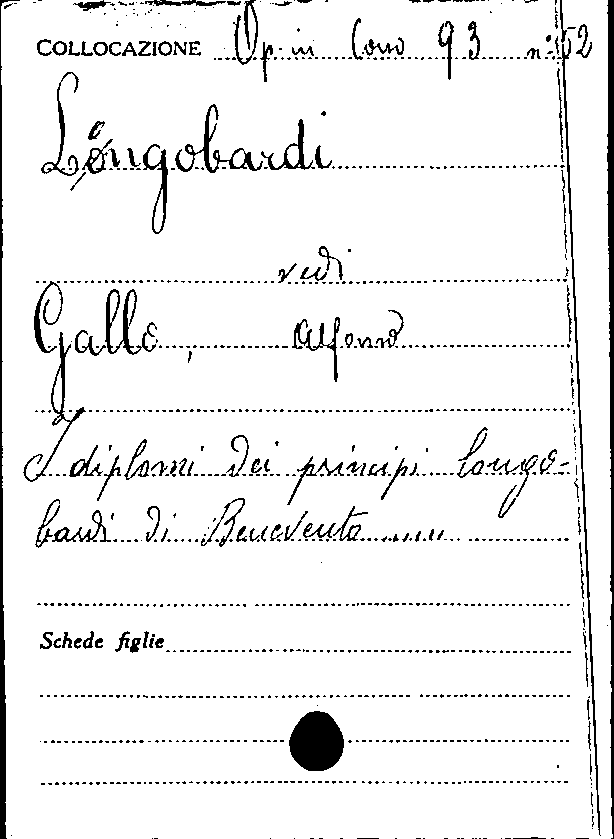 COLLOCAZIONE Op. in Cons 93 n: 52
Longobardi
vedi
Gallo, Alfonso
I diplomi dei principi longo-
bardi di Benevento ......
Schede figlie